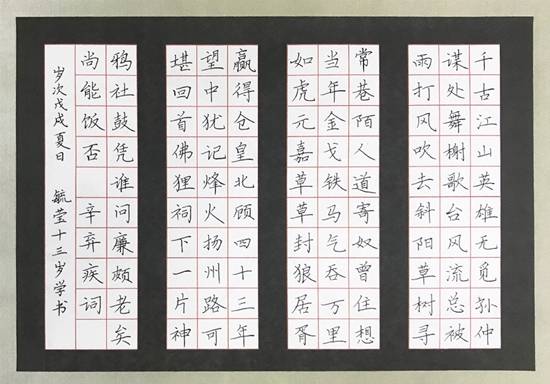 千古江山英雄无觅孙仲
谋处舞榭歌台风流总被
雨打风吹去斜阳草树寻
常巷陌人道寄奴曾住想
当年金戈铁马气吞万里
如虎元嘉草草封狼居胥
赢得仓皇北顾四十三年
望中犹记烽火扬州路可
堪回首佛狸祠下一片神
鸦社鼓凭谁问廉颇老矣
尚能饭否 辛弃疾词
岁次戊戌夏日 毓莹十三岁学书